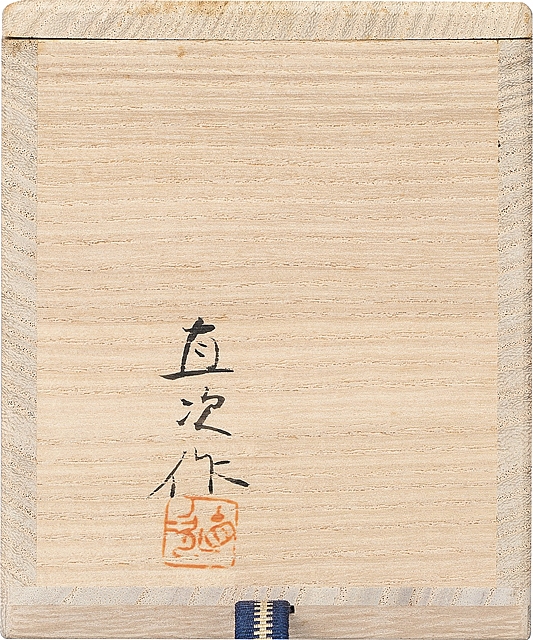 直次作